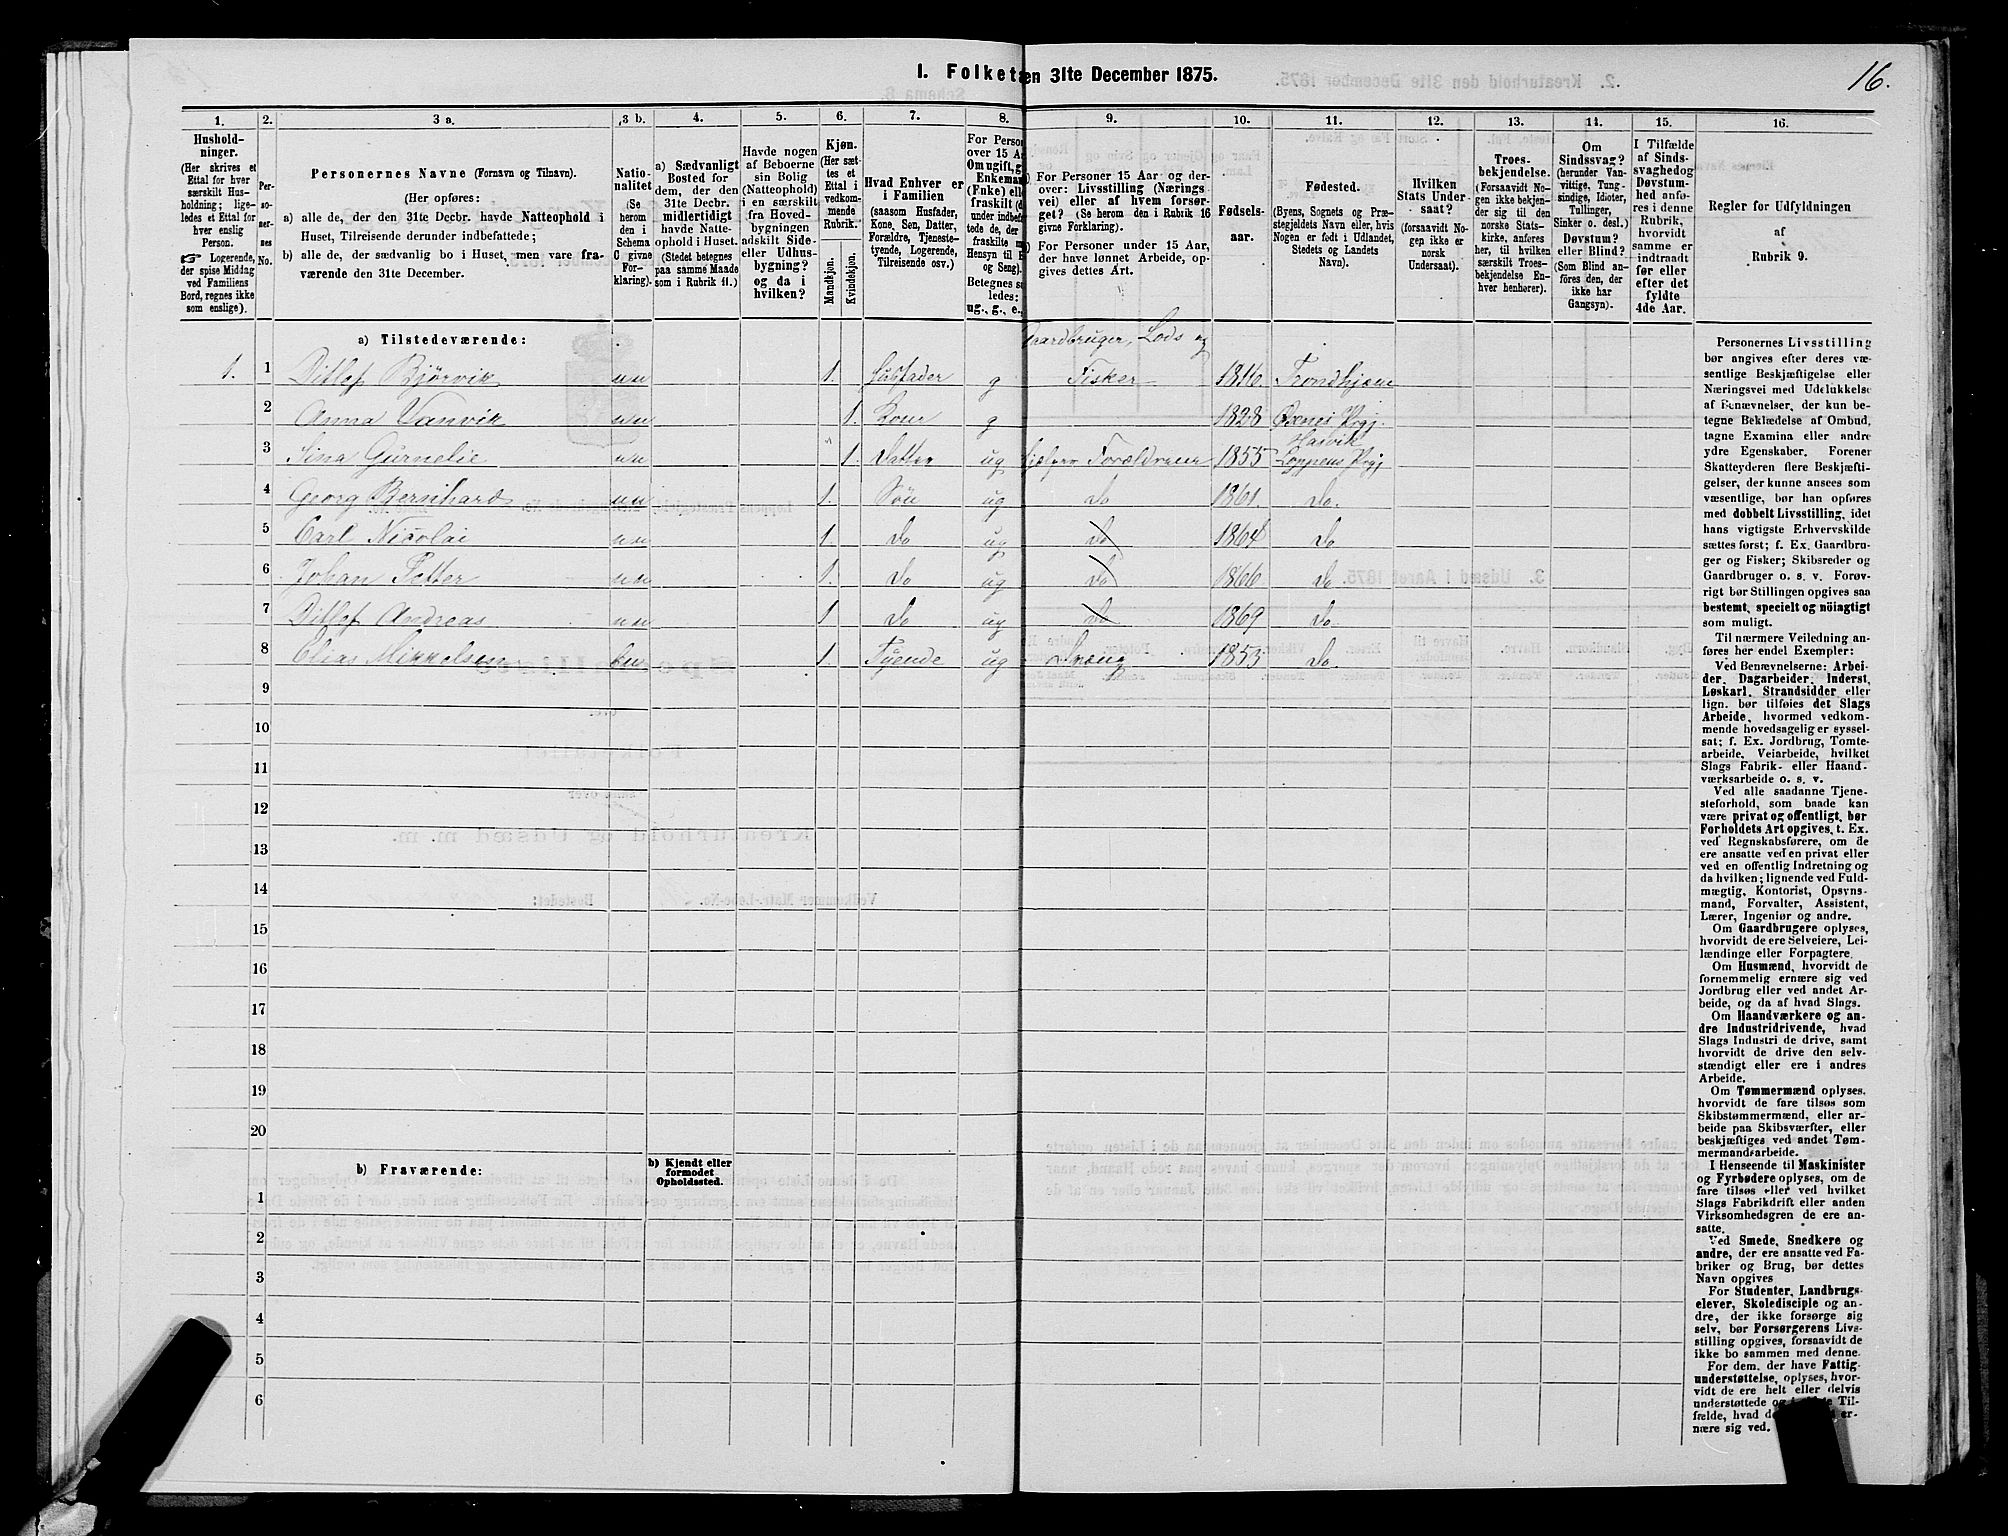 I. Folketæn 31te December 1875.
16.
1. 2. 3 a. 3 b. 4. 5. 6. 7. 8. 9. 10. 11. 12. 13. 14. 15. 16.
Hushold-
ninger.
(Her skrives et
Ettal for hver
særskilt Hus-
holdning; lige-
ledes et Ettal for
hver enslig
Person.
☞ Logerende,
der spise Middag
ved Familiens
Bord, regnes ikke
som enslige).
Per-
so-
ner-
nes
No.
Personernes Navne (Fornavn og Tilnavn).
(Her opføres:
a) alle de, der den 31te Decbr. havde Natteophold i
Huset, Tilreisende derunder indbefattede;
b) alle de, der sædvanlig bo i Huset, men vare fra-
værende den 31te December.
Natio-
nalitet
(Se
herom
den i
Schema
C givne
For-
klaring).
a) Sædvanligt
Bosted for
dem, der den
31te Decbr.
midlertidigt
havde Natte-
ophold i Huset.
(Stedet betegnes
paa samme Maade
som i Rubrik 11.)
Havde nogen
af Beboerne
sin Bolig
(Natteophold)
i en særskilt
fra Hoved-
bygningen
adskilt Side-
eller Udhus-
bygning?
og da i
hvilken?
Kjøn.
(Her sæt-
tes et
Ettal i
vedkom-
mende
Rubrik.
Mandkjøn.
Kvindekjøn.
Hvad Enhver er
i Familien
(saasom Husfader,
Kone, Søn, Datter,
Forældre, Tjeneste-
tyende, Logerende,
Tilreisende osv.)
For Person
over 15 Aa
Om ugift, g
Enkemand
(Fnke) ell
fraskilt (d
under indbef
tede de, der
fraskilte
Hensyn til B
og Seng).
Betegnes s
ledes:
ug., g., e.,
For Personer 15 Aar og der-
over: Livsstilling (Nærings
vei) eller af hvem forsør-
get? (Se herom den i Rubrik 16
givne Forklaring).
For Personer under 15 Aar,
der have lønnet Arbeide, op-
gives dettes Art.
Fødsels-
aar.
Fødested.
(Byens, Sognets og Præ-
stegjeldets Navn eller, hvis
Nogen er født i Udlandet,
Stedets og Landets
Navn).
Hvilken
Stats Under-
saat?
(forsaavidt No-
gen ikke er
norsk
Undersaat).
Troes-
bekjendelse.
(Forsaavidt No-
gen ikke bekjen-
der sig til den
norske Stats-
kirke, anføres
her, til hvilken
særskilt Troes-
bekjendelse En-
hver henhører).
Om
Sindssvag?
(herunder Van-
vittige, Tung-
sindige, Idioter,
Tullinger,
Sinker o. desl.)
Døvstum?
eller Blind?
(Som Blind an-
føres den, der
ikke har
Gangsyn).
I Tilfælde
af Sinds-
svaghed og
Døvstum-
hed anfø-
res i denne
Rubrik,
hvorvidt
samme er
indtraadt
før eller
efter det
fyldte
4de Aar.
Regler for Udfyldningen
af
Rubrik 9.
a) Tilstedeværende:
Gaardbruger, Lods og
1. 1 Ditlef Bjørvik nn 1. Husfader g Fisker 1816. Trondhjem
2 Anna Vanvik nn 1. Kone g 1828 Øxnes Prgj.
Hasvik
3 Sina Gurnelie nn 1. Datter ug hjelper Forældrene 1855 Loppens Prgj
4 Georg Bernhard nn 1. Søn ug do 1861. do.
5 Carl Nicolai nn 1. do ug do 1864 do
6 Johan Petter nn 1. do ug do 1866 do.
7 Ditlef Andreas nn 1 do ug do 1869 do.
8 Elias Mikkelsen 1. Tyende ug Dræng 1853 do.
9
10
11
12
13
14
15
16
17
18
19
20
b) Fraværende:
b) Kjendt eller
formodet
Opholdssted.
1
2
3
4
5
6
Personernes Livsstilling
bør angives efter deres væ-
sentlige Beskjæftigelse eller
Næringsvei med Udelukkelse
af Benævnelser, der kun be-
tegne Beklædelse af Ombud,
tagne Examina eller andre
ydre Egenskaber. Forener
Skatteyderen flere Beskjæfti-
gelser, der kunne ansees som
væsentlige, bør han opføres
med dobbelt Livsstilling, idet
hans vigtigste Erhvervskilde
sættes først; f. Ex. Gaardbru-
ger og Fisker; Skibsreder og
Gaardbruger o. s. v. Forøv-
rigt bør Stillingen opgives saa
bestemt, specielt og nöiagtigt
som muligt.
Til nærmere Veiledning an-
føres her endel Exempler:
Ved Benævnelserne: Arbei-
der, Dagarbeider, Inderst,
Løskarl, Strandsidder eller
lign. bør tilføies det Slags
Arbeide, hvormed vedkom-
mende hovedsagelig er syssel-
sat; f. Ex. Jordbrug, Tomte-
arbeide, Veiarbeide, hvilket
Slags Fabrik- eller Haand-
værksarbeide o. s. v.
Ved alle saadanne Tjene-
steforhold, som baade kan
være privat og offentligt, bør
Forholdets Art opgives, t. Ex.
ved Regnskabsførere, om de
ere ansatte ved en privat eller
ved en offentlig Indretning og
da hvilken; lignende ved Fuld-
mægtig, Kontorist, Opsyns-
mand, Forvalter, Assistent,
Lærer, Ingeniør og andre.
Om Gaardbrugere oplyses,
hvorvidt de ere Selveiere, Lei-
lændinge eller Forpagtere.
Om Husmænd, hvorvidt de
fornemmelig ernære sig ved
Jordbrug eller ved andet Ar-
beide, og da af hvad Slags.
Om Haandværkere og an-
dre Industridrivende, hvad
Slags Industri de drive, samt
hvorvidt de drive den selv-
stændigt eller ere i andres
Arbeide.
Om Tømmermænd oplyses,
hvorvidt de fare tilsøs som
Skibstømmermænd, eller ar-
beide paa Skibsværfter, eller
beskjæftiges ved andet Töm-
mermandsarbeide.
I Henseende til Maskinister
og Fyrbødere oplyses, om de
fare tilsøs eller ved hvilket
Slags Fabrikdrift eller anden
Virksomhedsgren de ere an-
satte.
Ved Smede, Snedkere og
andre, der ere ansatte ved Fa-
briker og Brug, bør dettes
Navn opgives
For Studenter, Landbrugs-
elever, Skoledisciple og an-
dre, der ikke forsørge sig
selv, bør Forsørgerens Livs-
stilling opgives, forsaavidt de
ikke bo sammen med denne.
For dem, der have Fattig-
understøttelse, oplyses, hvor-
vidt de ere helt eller delvis
understøttede og Til-
fælde, hvad er-
nære sig ved.